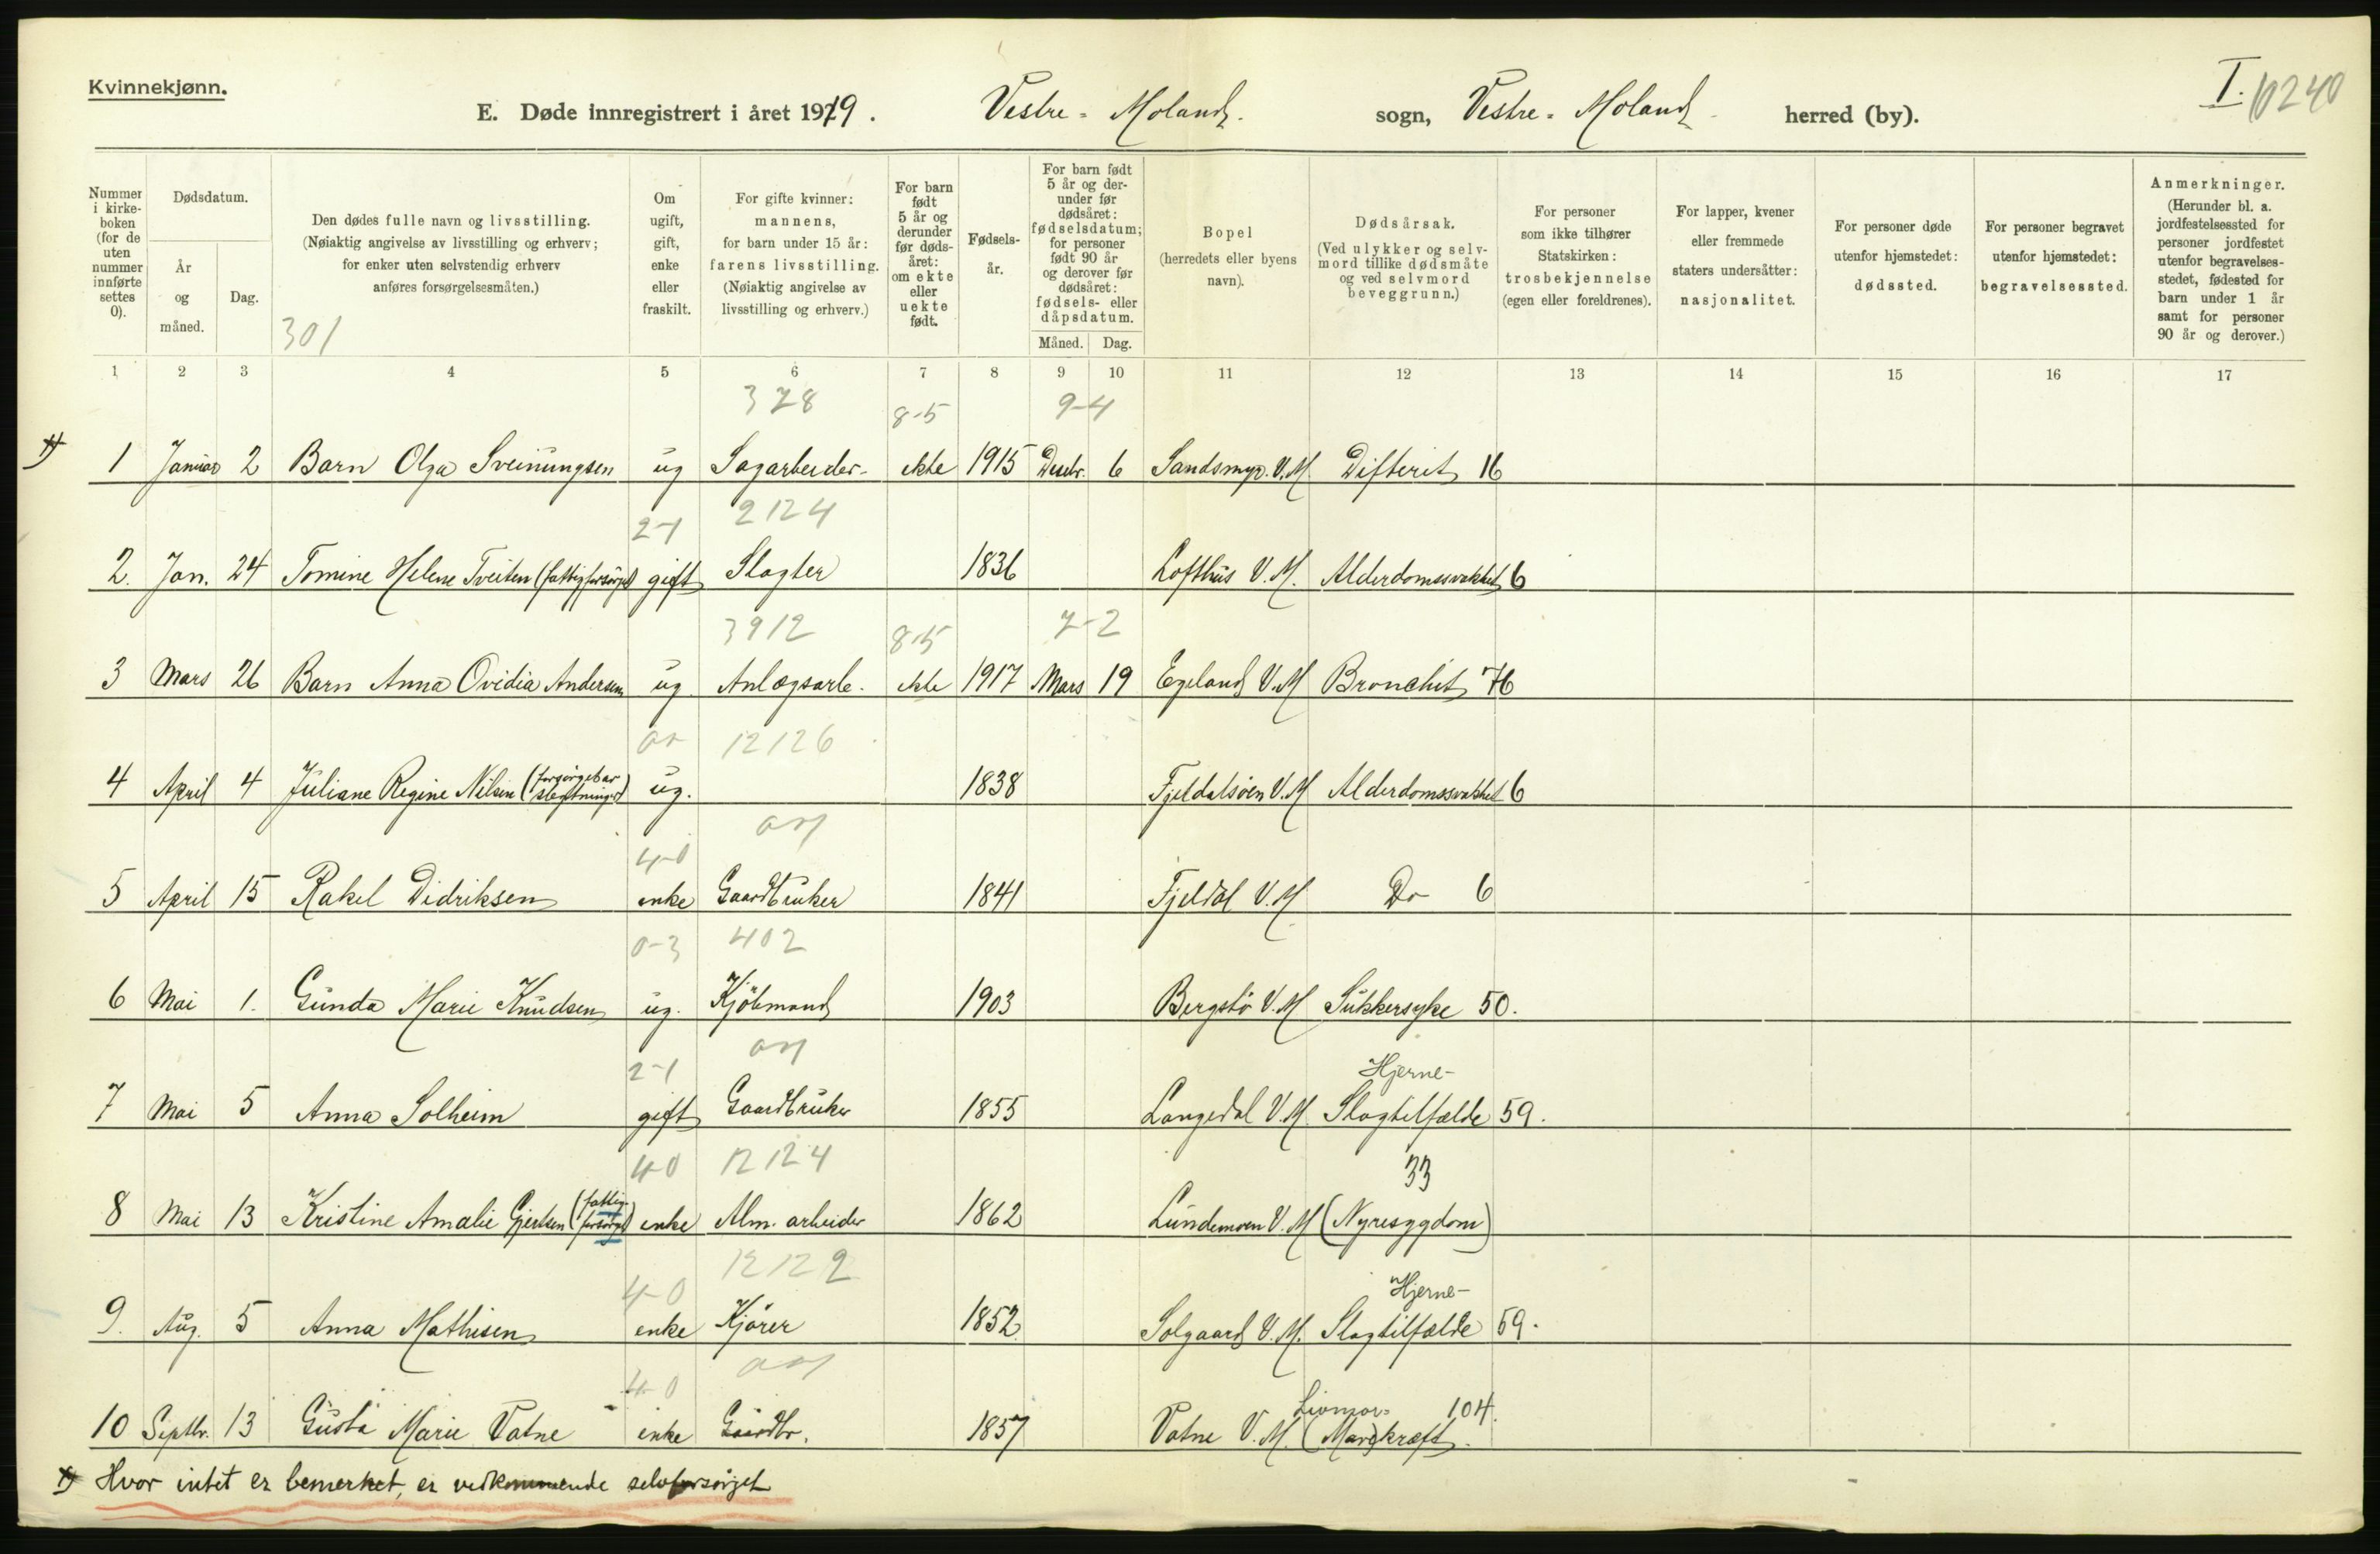 Kvinnekjønn.
I. 10240
E. Døde innregistrert i året 1919. Vestre - Moland. sogn, Vestre - Moland herred (by).
Nummer i kirke-boken (for de uten nummer innførte settes 0).
Dødsdatum.
År og måned.
Dag.
Den dødes fulle navn og livsstilling.
(Nøiaktig angivelse av livsstilling og erhverv;
for enker uten selvstendig erhverv
anføres forsørgelsesmåten.)
301
Om ugift, gift, enke eller fraskilt.
For gifte kvinner: mannens, for barn under 15 år: farens livsstilling. (Nøiaktig angivelse av livsstilling og erhverv.)
For barn født 5 år og derunder før døds-året: om ekte eller uekte født.
Fødsels-år.
For barn født 5 år og der-under før dødsåret: fødselsdatum; for personer født 90 år og derover før dødsåret: fødsels- eller dåpsdatum.
Måned. Dag.
Bopel (herredets eller byens navn).
Dødsårsak. (Ved ulykker og selv-mord tillike dødsmåte og ved selvmord beveggrunn.)
For personer som ikke tilhører Statskirken: trosbekjennelse (egen eller foreldrenes).
For lapper, kvener eller fremmede staters undersåtter: nasjonalitet.
For personer døde utenfor hjemstedet: dødssted.
For personer begravet utenfor hjemstedet: begravelsessted.
Anmerkninger. (Herunder bl. a. jordfestelsessted for personer jordfestet utenfor begravelses-stedet, fødested for barn under 1 år samt for personer 90 år og derover.)
1 2 3 4 5 6 7 8 9 10 11 12 13 14 15 16 17
378 8-5 9-4
1) 1 Januar 2 Barn Olga Sveinungsen ug Sagarbeider- ekte 1915 Desbr. 6 Sandsmyr. V.M. Difterit 16
2-1 2124
2. Jan. 24 Tomine Helene Tveiten (fattigforsørget) gift Slagter 1836 Lofthus V.M. Alderdomssvakhet 6
3912 8-5 7-2
3 Mars 26 Barn Anna Ovidia Andersen ug Anlægsarb. ekte 1917 Mars 19 Egeland V.M Bronchit 76
12126
4 April 4 Juliane Regine Nilsen (forsørget av slegtninger) ug. 1838 Fjeldalsøen V.M Alderdomssvakhet 6
4-0
5 April 15 Rakel Didriksen enke Gaardbruker 1841 Fjeldal V.M Do 6
0-3 402
6 Mai 1. Gunda Marie Knudsen ug. Kjøbmand 1903 Bergstø V.M Sukkersyke 50.
2-1
7 Mai 5 Anna Solheim gift Gaardbruker 1855 Langedal V.M. Hjerne-Slagtilfælde 59.
4-0 12124 33
8 Mai 13 Kristine Amalie Gjertsen (fattig-forsørget) enke Alm. arbeider 1862 Lundemoen V.M (Nyresygdom)
4-0 12122
9. Aug. 5 Anna Mathisen enke Kjører 1852 Solgaard V.M. Hjerne-Slagtilfælde 59.
4-0
10 Septbr. 13 Gusta Marie Vatne enke Gaardbr. 1857 Vatne V.M. kræft 104.
1) Hvor intet er bemerket, er vedkommende selvforsørget